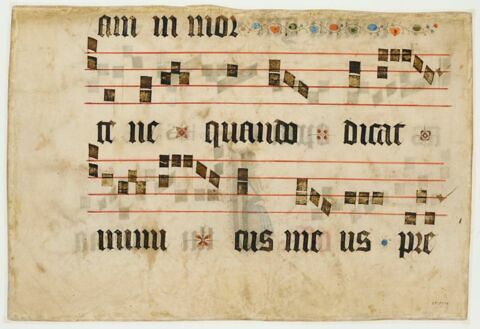 am in mor
te ne quando dicat
inimi cus me us pre